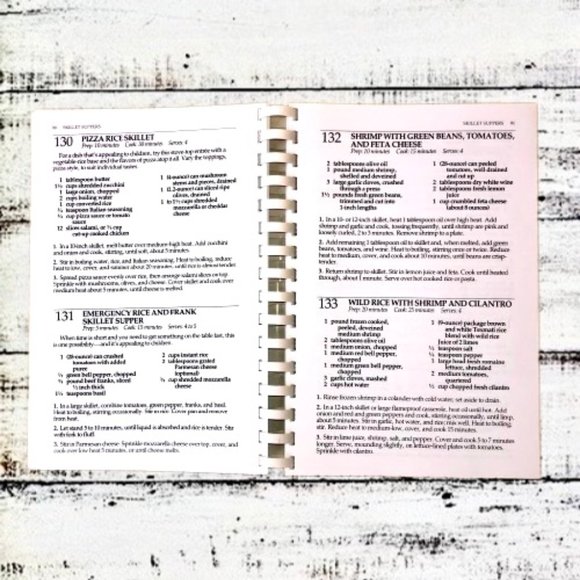 SKILLET SUPPERS
130 PIZZA RICE SKILLET
Prep: 10 minutes Cook: 30 minutes Serves: 4
For a dish that's appealing to children, try this stove-top entrée with a
vegetable-rice base and the flavors of pizza atop it all. Vary the toppings,
pizza style, to suit individual tastes.
1 tablespoon butter
1½ cups shredded zucchini
1 large onion, chopped
2 cups boiling water
1 cup converted rice
¾ teaspoon Italian seasoning
¾ cup pizza sauce or tomato
sauce
12 slices salami, or ¾ cup
cut-up cooked chicken
1 (8-ounce) can mushroom
stems and pieces, drained
1 (2.2-ounce) can sliced ripe
olives, drained
1 to 1½ cups shredded
mozzarella or cheddar
cheese
1. In a 10-inch skillet, melt butter over medium-high heat. Add zucchini
and onion and cook, stirring, until soft, about 5 minutes.
2. Stir in boiling water, rice, and Italian seasoning. Heat to boiling, reduce
heat to low, cover, and simmer about 20 minutes, until rice is almost tender.
3. Spread pizza sauce evenly over rice, then arrange salami slices on top.
Sprinkle with mushrooms, olives, and cheese. Cover skillet and cook over
medium heat about 5 minutes, until cheese is melted.
131 EMERGENCY RICE AND FRANK
SKILLET SUPPER
Prep: 5 minutes Cook: 15 minutes Serves: 4 to 5
When time is short and you need to get something on the table fast, this
is one possibility—and it's appealing to children.
1 (28-ounce) can crushed
tomatoes with added
puree
green bell pepper, chopped
pound beef franks, sliced
½ inch thick
1½ teaspoons basil
2 cups instant rice
2 tablespoons grated
Parmesan cheese
(optional)
cup shredded mozzarella
cheese
1. In a large skillet, combine tomatoes, green pepper, franks, and basil.
Heat to boiling, stirring occasionally. Stir in rice. Cover pan and remove
from heat.
2. Let stand 5 to 10 minutes, until liquid is absorbed and rice is tender. Stir
with fork to fluff.
3. Stir in Parmesan cheese. Sprinkle mozzarella cheese over top, cover, and
cook over low heat 5 minutes, or until cheese melts.
SKILLET SUPPERS
132 SHRIMP WITH GREEN BEANS, TOMATOES,
AND FETA CHEESE
Prep: 10 minutes Cook: 15 minutes Serves: 4
2 tablespoons olive oil
1 pound medium shrimp,
shelled and deveined
3 large garlic cloves, crushed
through a press
1½ pounds fresh green beans,
trimmed and cut into
1-inch lengths
1 (28-ounce) can peeled
tomatoes, well-drained
and cut up
2 tablespoons dry white wine
2 tablespoons fresh lemon
juice
1 cup crumbled feta cheese
(about 8 ounces)
1. In a 10- or 12-inch skillet, heat 1 tablespoon oil over high heat. Add
shrimp and garlic and cook, tossing frequently, until shrimp are pink and
loosely curled, 2 to 3 minutes. Remove shrimp to a plate.
2. Add remaining 1 tablespoon oil to skillet and, when melted, add green
beans, tomatoes, and wine. Heat to boiling, stirring once or twice. Reduce
heat to medium, cover, and cook about 10 minutes, until beans are crisp-
tender.
3. Return shrimp to skillet. Stir in lemon juice and feta. Cook until heated
through, about 1 minute. Serve over hot cooked rice or pasta.
133 WILD RICE WITH SHRIMP AND CILANTRO
Prep: 20 minutes Cook: 25 minutes Serves: 4
1 pound frozen cooked,
peeled, deveined
medium shrimp
2 tablespoons olive oil
1 medium onion, chopped
1 medium red bell pepper,
chopped
1 medium green bell pepper,
chopped
3 garlic cloves, mashed
2 cups hot water
1 (9-ounce) package brown
and white Texmati rice
blend with wild rice
Juice of 2 limes
teaspoon salt
teaspoon pepper
1 large head fresh romaine
lettuce, shredded
2 medium tomatoes,
quartered
½ cup chopped fresh cilantro
1. Rinse frozen shrimp in a colander with cold water; set aside to drain.
2. In a 12-inch skillet or large flameproof casserole, heat oil until hot. Add
onion and red and green peppers and cook, stirring occasionally, until limp,
about 5 minutes. Stir in garlic, hot water, and rice; mix well. Heat to boiling,
stir. Reduce heat to medium-low, cover, and cook 15 minutes.
3. Stir in lime juice, shrimp, salt, and pepper. Cover and cook 5 to 7 minutes
longer. Serve, mounding slightly, on lettuce-lined plates with tomatoes.
Sprinkle with cilantro.